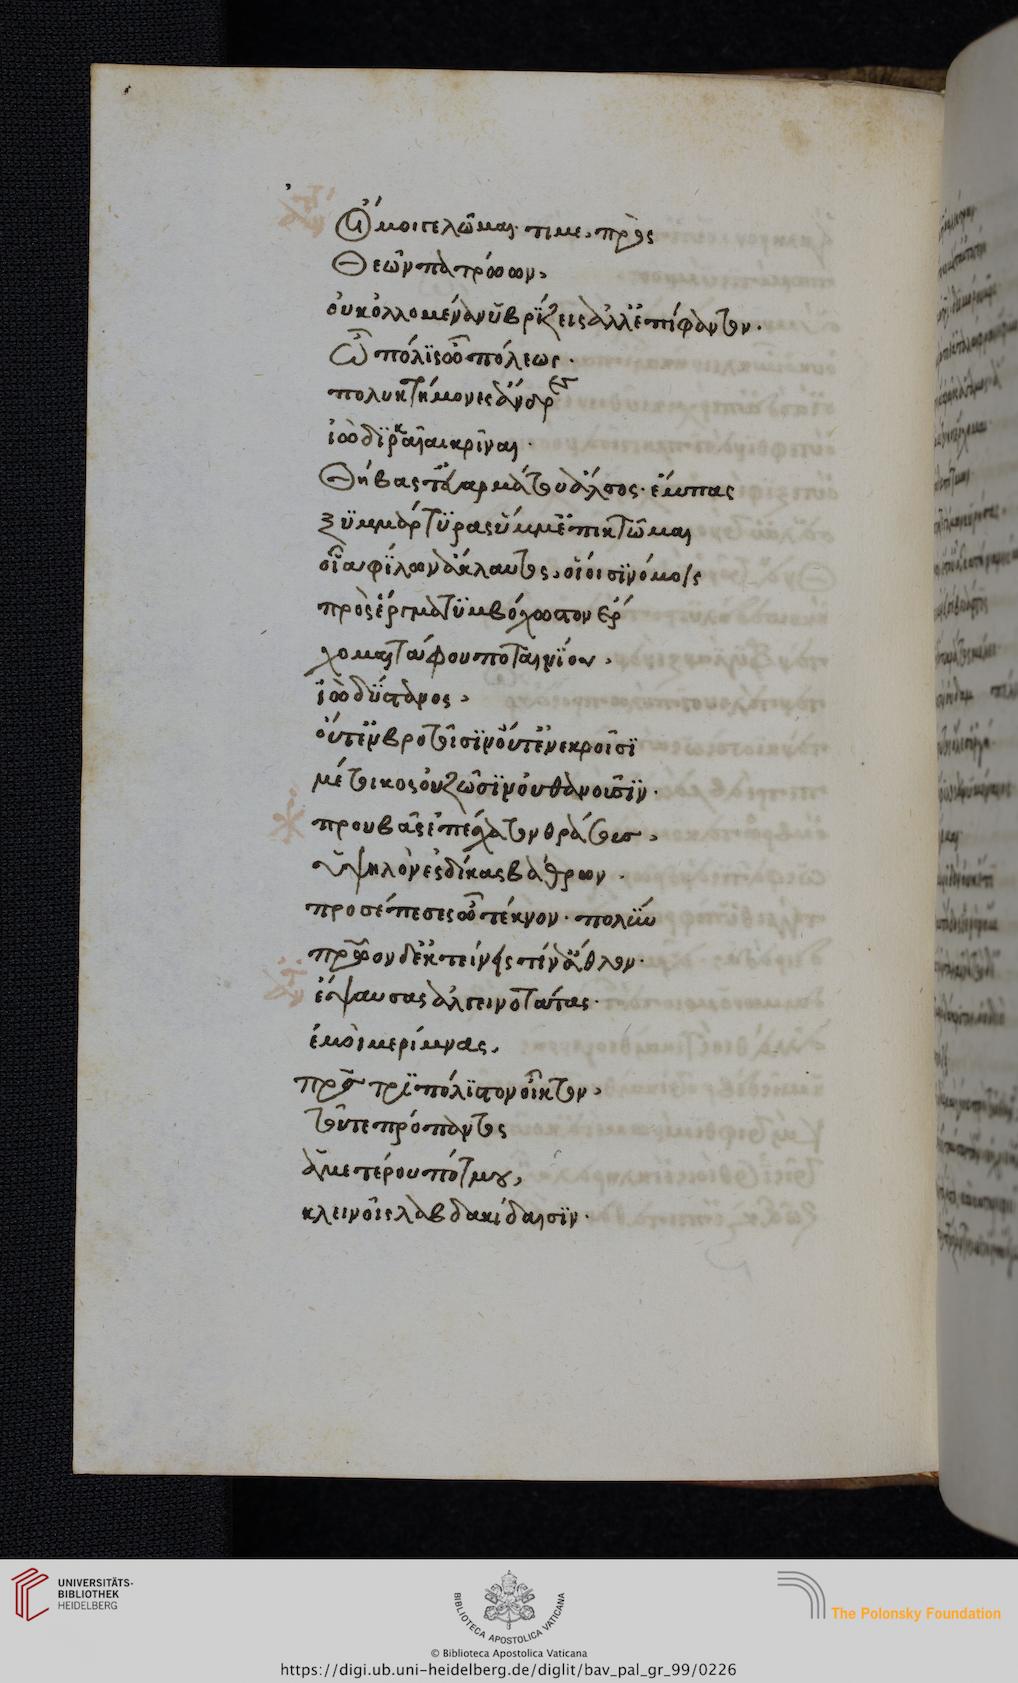 Οἴμοι γελῶμαι. τί με, πρὸς
Θεῶν πατρώων,
οὐκ ὀλλομέναν ὑβρίζεις ἀλλ' ἐπίφαντον.
Ὦ πόλις ὦ πόλεως.
πολυκτήμονες ἄνδρες
ἰὼ διρκαῖαι κρῆναι.
Θήβας τ' εὐαρμάτου ἄλσος. ἔμπας
ξυμμάρτυρας ὔμμ' ἐπικτῶμαι
οἵα φίλων ἄκλαυτος, οἵοισι νόμοις
πρὸς ἕργμα τυμβόχωστον ἔρ
χομαι τάφου ποταινίου,
ἰὼ δύστανος,
οὔτ' ἐν βροτοῖσιν οὔτ' ἐν νεκροῖσι
μέτοικος οὐ ζῶσιν οὐ θανοῦσιν.
προυβᾶς ἐπ' ἔσχατον θράσους,
ὑψηλὸν ἐς δίκας βάθρων.
προσέπεσες ὦ τέκνον. πολύ
πατρῷον δ' ἐκτείνεις τίν' ἆθλον.
ἔψαυσας ἀλγεινοτάτας.
ἐμοὶ μερίμνας,
πατρὸς τριπόλιστον οἶκτον,
τοῦ τε πρόπαντος
ἁμετέρου πότμου,
κλεινοῖς λαβδακίδαισιν.
UNIVERSITÄTS-
BIBLIOTHEK
HEIDELBERG
BIBLIOTECA APOSTOLICA VATICANA
The Polonsky Foundation
© Biblioteca Apostolica Vaticana
https://digi.ub.uni-heidelberg.de/diglit/bav_pal_gr_99/0226